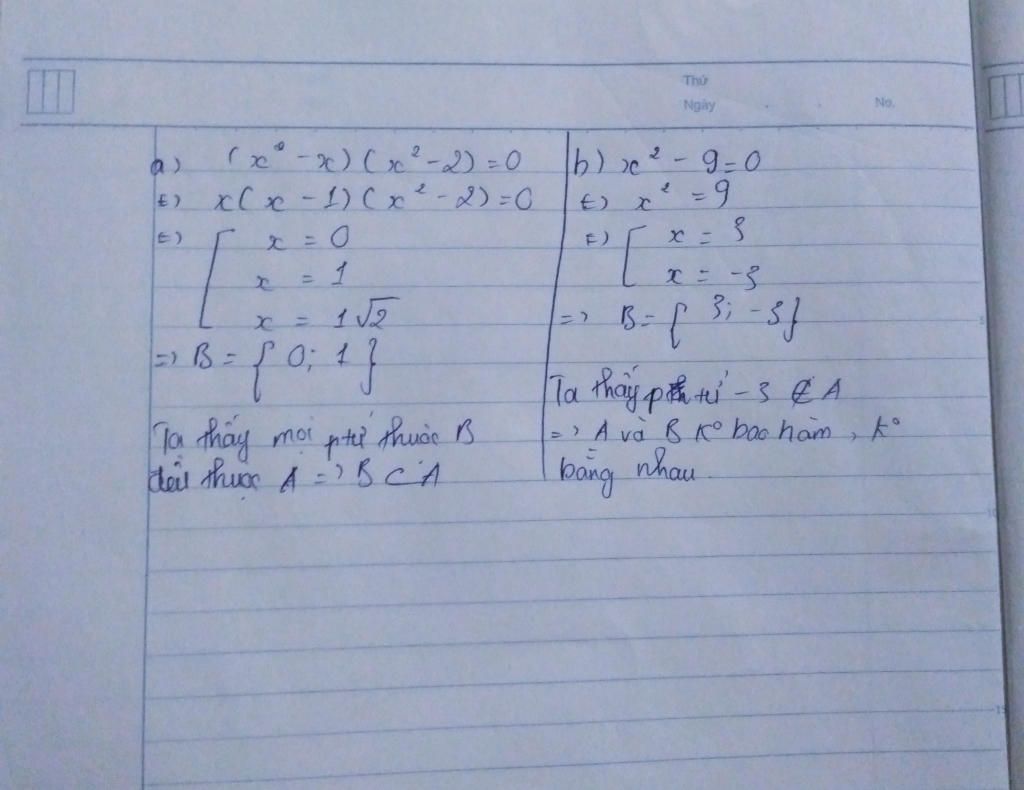 Thứ
Ngày
No.
a) (x² - x)(x² - 2) = 0
⇔ x(x - 1)(x² - 2) = 0
⇔ [ x = 0
x = 1
x = 1√2
=> B = { 0; 1 }
Ta thấy mọi ptử thuộc B
đều thuộc A => B ⊂ A
b) x² - 9 = 0
⇔ x² = 9
⇔ [ x = 3
x = -3
=> B = { 3; -3 }
Ta thấy ptử -3 ∉ A
=> A và B K° bao hàm, K°
bằng nhau.